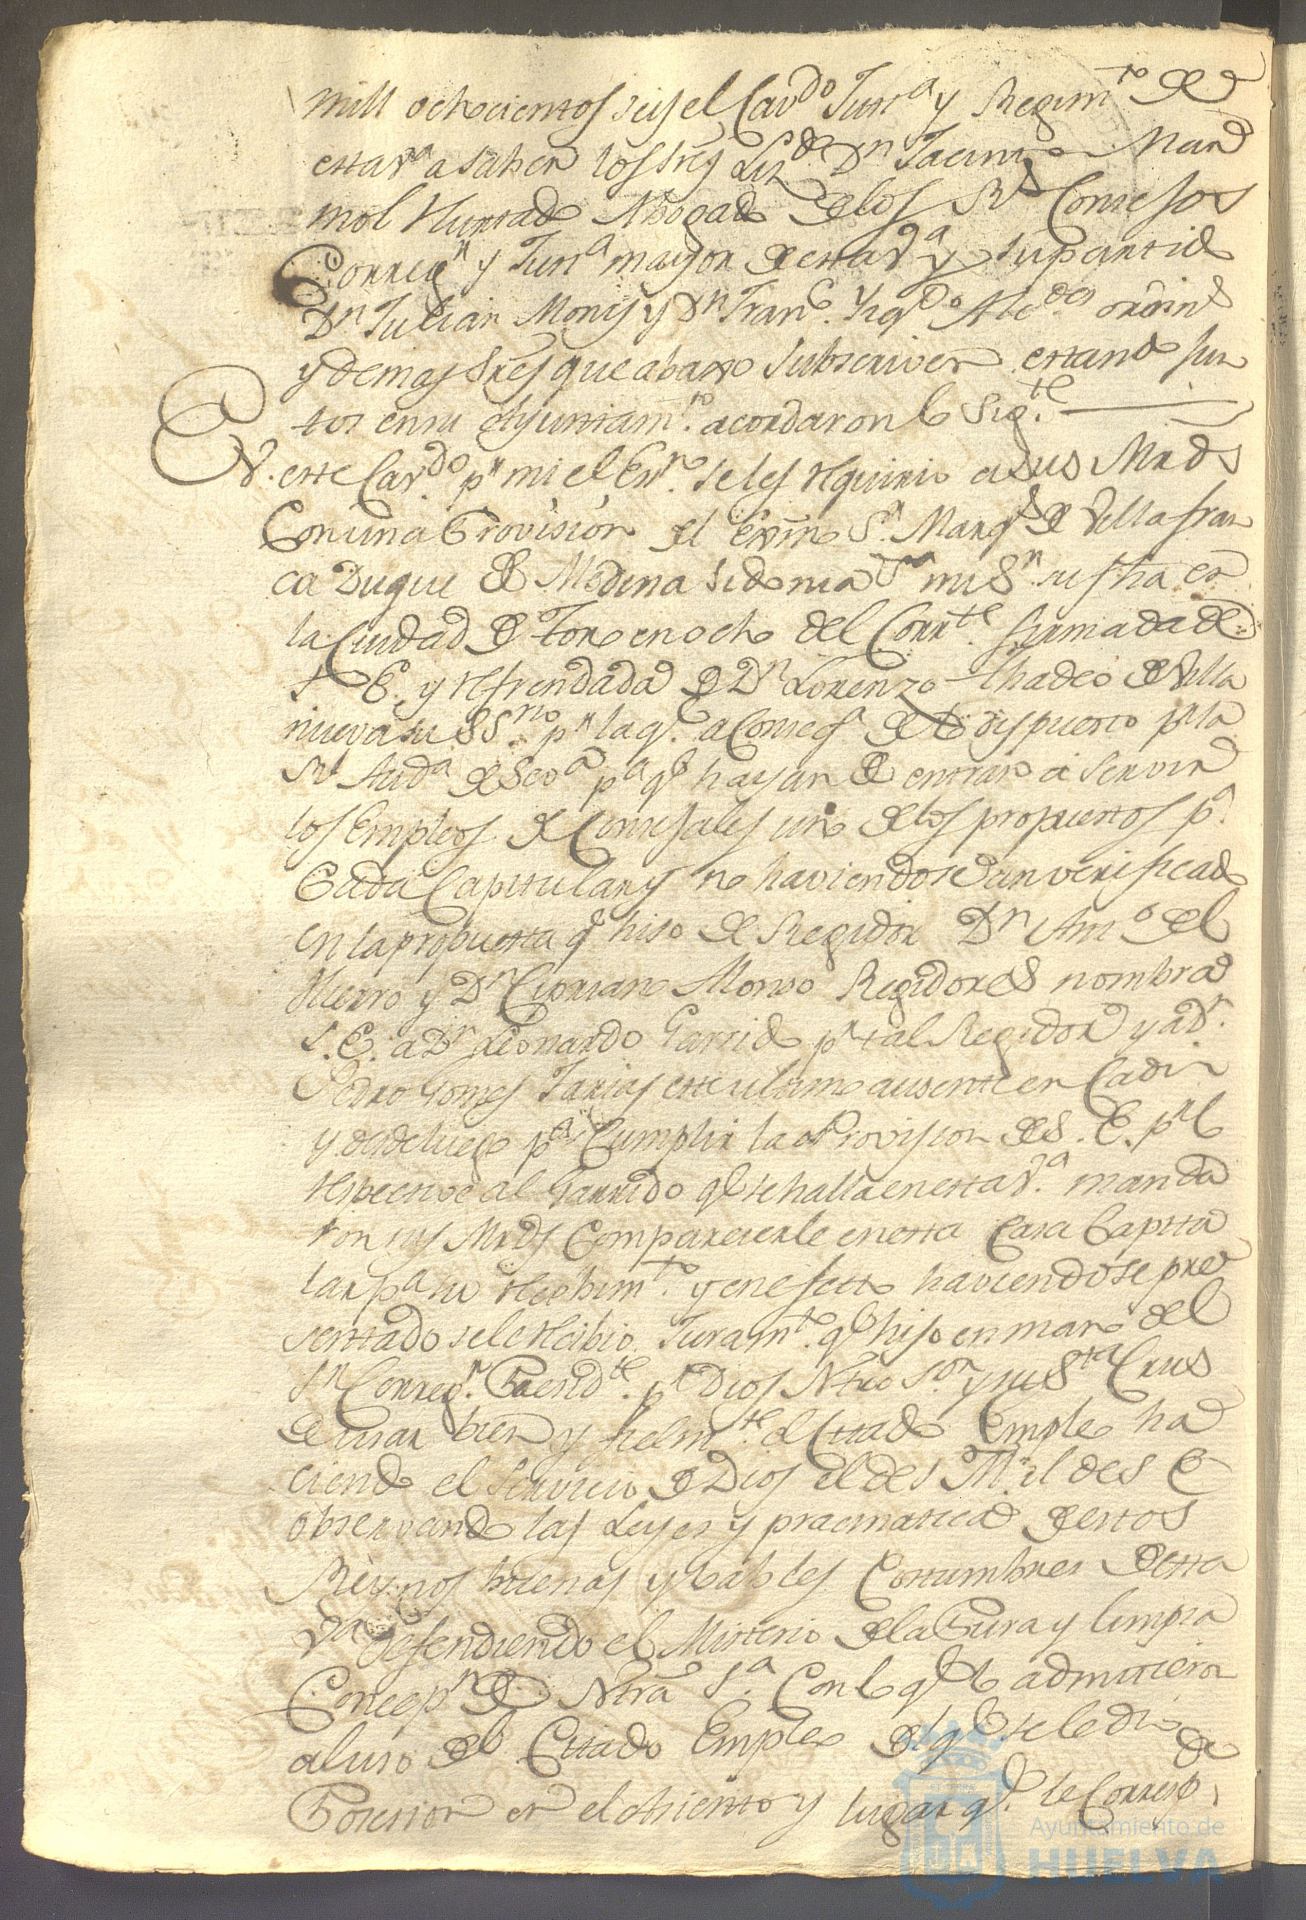 mill ochocientos seis el Cavdo Justa y Regimto de
esta va a saber los sres Lizdo Dn Jacinto Mar
mol Hurtado Abogado de los Rs Consejos
Corregr y Justa mayor de esta Va y su partido
Dn Julian Monis y Dn Franco Yzqdo Alcdes ordins
y demas sres que abaxo subscriven estando jun
tos en su Ayuntamto. acordaron lo sigte
En. este Cavdo pr mi el Esno. se les requirio a sus Mrds
con una Provision del Exmo Sr. Marqs de Villafran
ca Duque de Medina Sidonia mi Sr. su fha en
la Ciudad de Toro en ocho del Corrte. firmada de
S E. y refrendada de Dn Lorenzo Thadeo de Villa
nueva su SSrio pr la q. a conseq de lo dispuesto pr la
Rl Auda de Seva pa qe hayan de entrar a servir
los Empleos de Consejales uno de los propuestos pa.
Cada Capitular y no haviendose an verificado
en la propuesta qe hiso de Regidor Dn Anto del
Hierro y Dn Ciprian Alonso Regidores nombra
S. E. a Dn Leonardo Garrido pr tal Regidor y a Dn.
Pedro Gomes Farias este ultimo ausente en Cadiz
y desde luego pa Cumplir la Provision de S. E. pr lo
respectivo al Garrido qe se halla en esta Va. manda
ron sus Mrds Comparecerle en esta Casa Capitu
lar pa su recibimto. y en efecto haviendose pre
sentado se le recibio Juramto. qe hiso en mano del
Sr Corregr. Presidte. pr Dios Ntro Sor y su Sta Crus
de usar bien y fielmte el Citado Empleo ha
ciendo el servicio de Dios el de S M. el de S E
observando las Leyes y pracmaticas de estos
Reynos buenas y loables Costumbres de esta
Va defendiendo el Misterio de la Pura y limpia
Concepn de Ntra Sa. Con lo qe lo admitieron
al uso del Citado Empleo del qe se le dio
Posesion en el asiento y lugar qe. le Corresp.
de
Ayuntamiento de
HUELVA